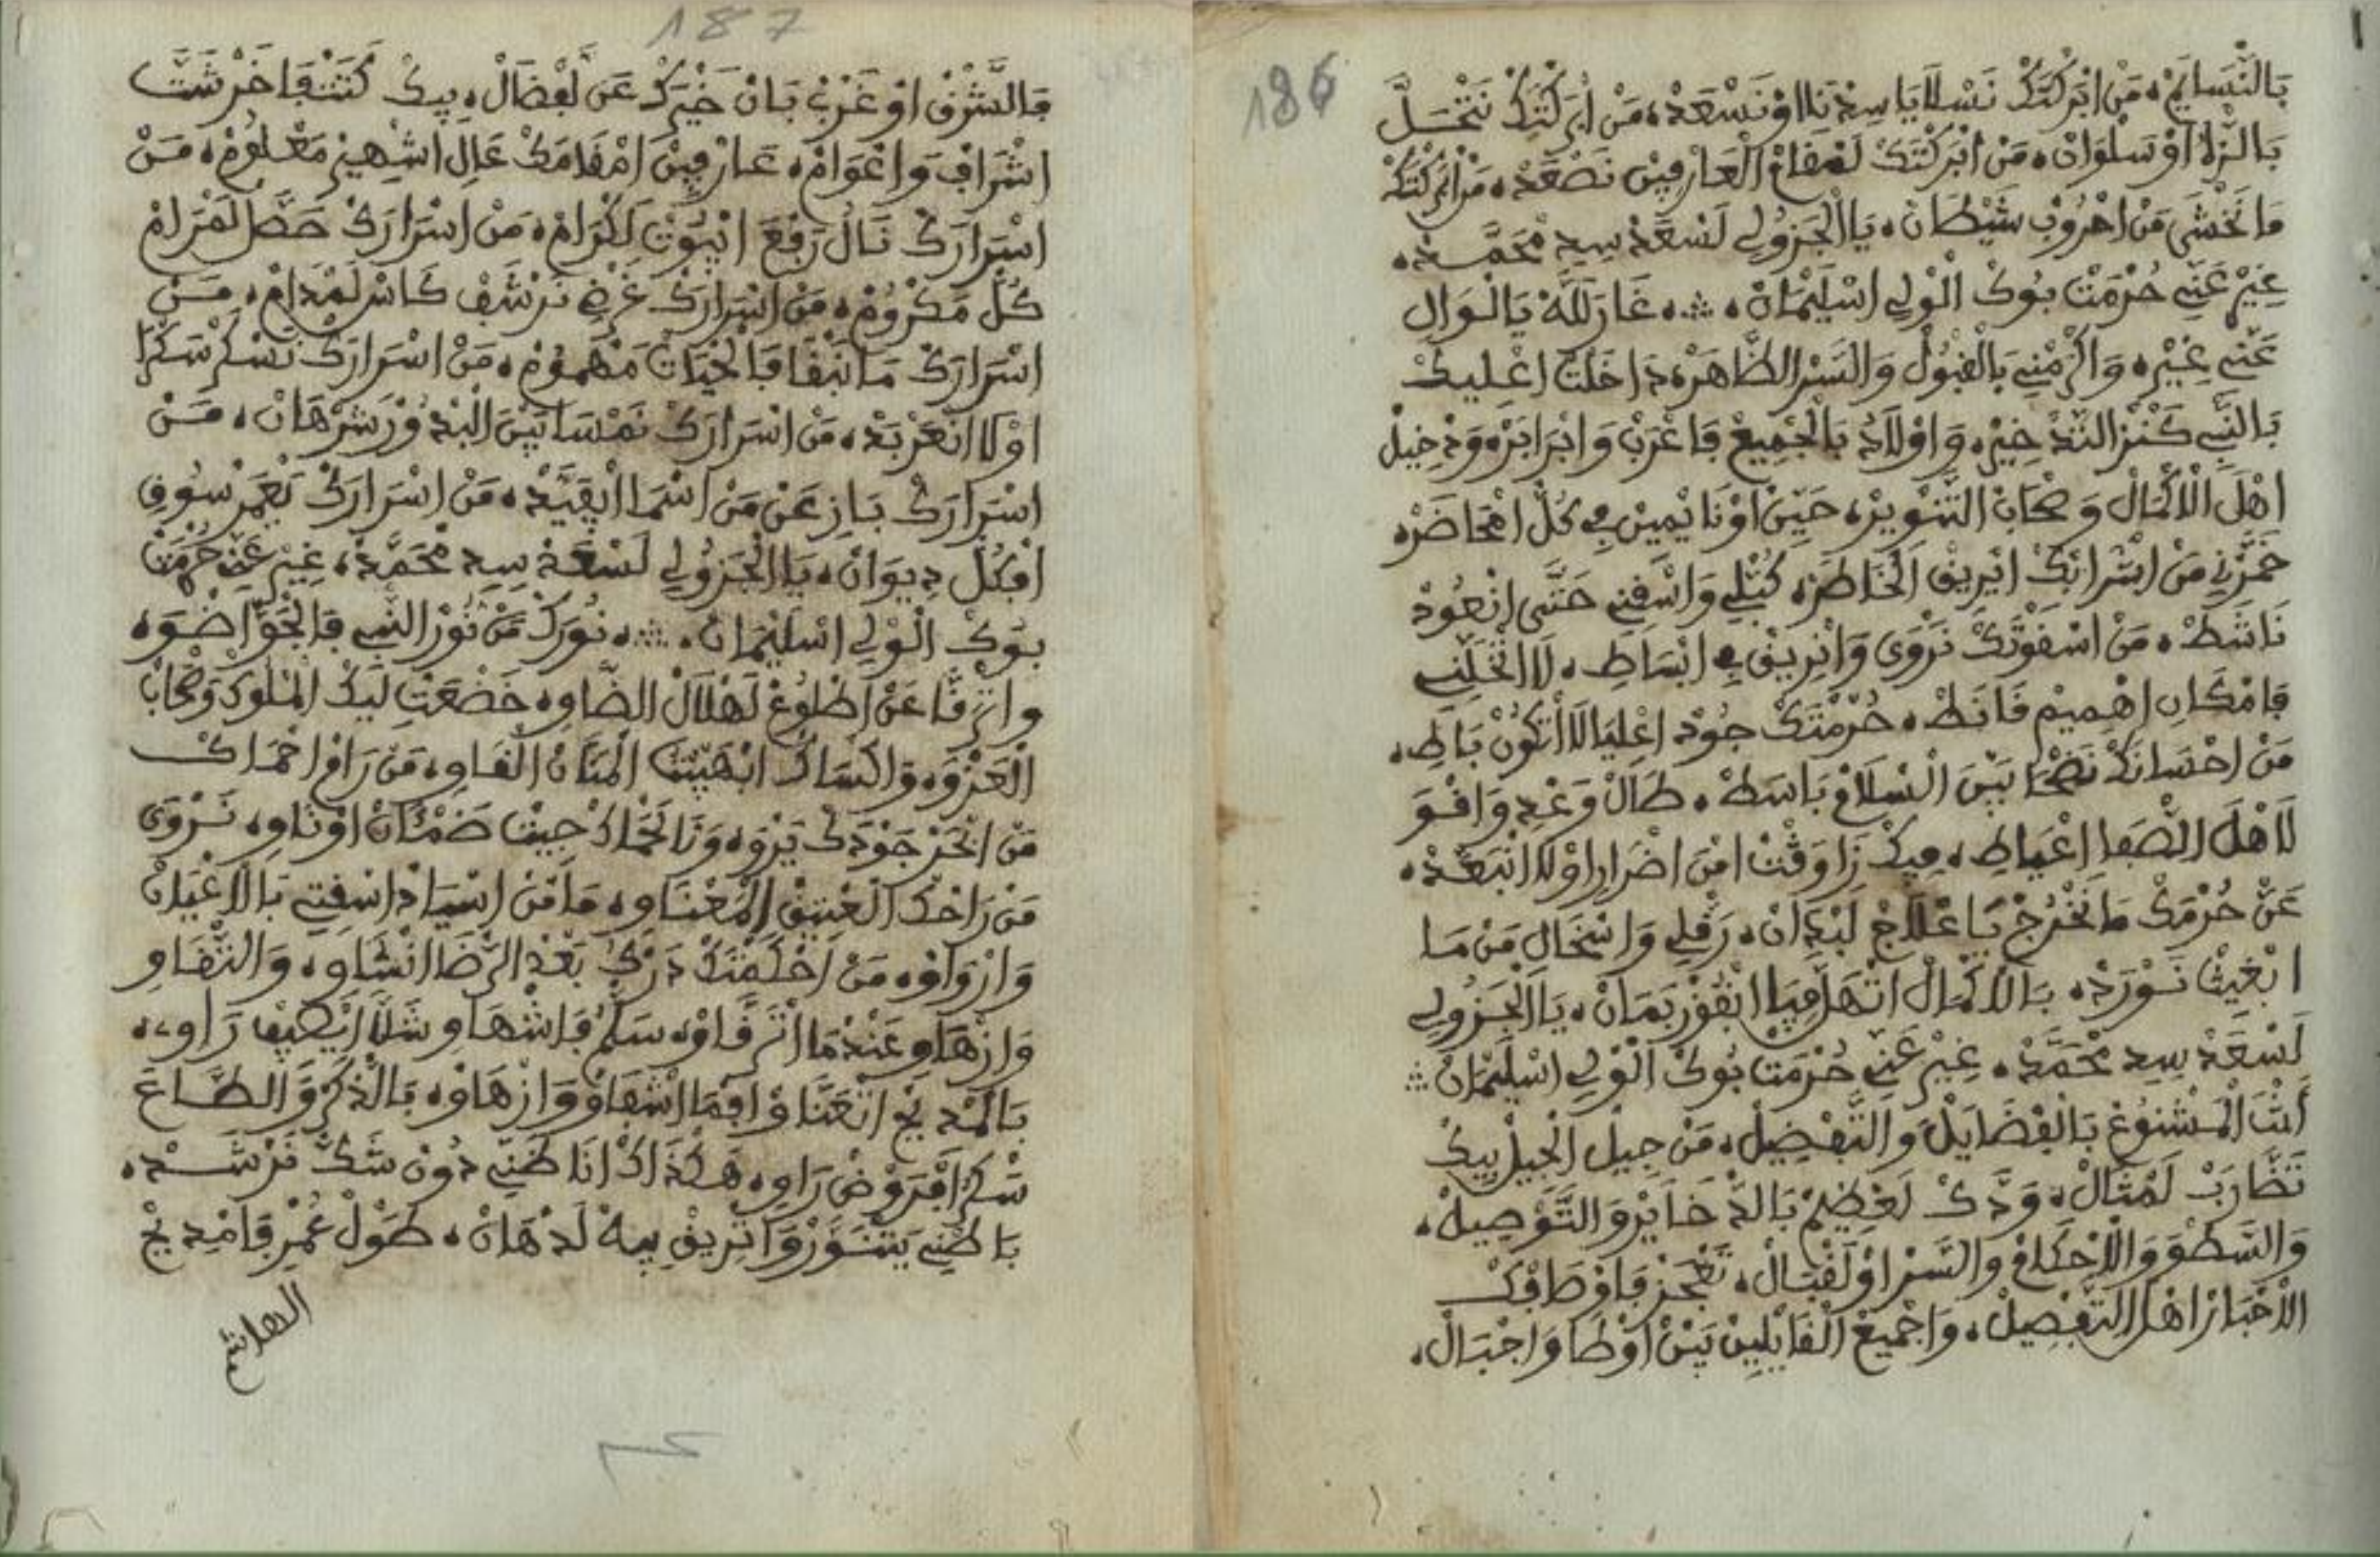 186
بَالنّْسَايَمْ، مَنْ ابَرْكْتَكْ نَسْلَا يَا سِيدْنَا اوْ نَسْعَدْ، مَنْ ابَرْكْتَكْ نَتْحَـلَّ
بَالرّْلَا اوْ سَلْوَانْ، مَنْ ابَرْكْتَكْ لَمْقَامْ الْعَارْفِينْ نَصْعَدْ، مَنْ ابَرْكْتَكْ
مَا نَخْشَى مَنْ احْرُوبْ شَيْطَانْ، يَا الْجَزُولِي لَسْعَدْ سِيدِ مْحَمَّــدْ،
غِيرْ عَنِّي حُرْمَتْ بُوكْ الْوْلِي اسْلِيمَانْ، ۞، غَارَ للَّهْ يَا الْـوَالِ
عَنِّي غِيرْ، وَاكْرْمْنِي بَالْقْبُولْ وَالسَّرْ الظَّاهَرْ، دَاخَلْتْ اعْلِيـكْ
بَالنّْبِي كَنْزْ التَّدْخِيرْ، وَاوْلَادُ بَالْجْمِيعْ فَاعْرَبْ وَابْرَابَرْ، وَدْخِيلْ
اهْلَ الْاكْمَالْ وَصْحَابْ التَّنْوِيرْ، حَيِّينْ اوْ نَايْمِينْ فِي كُلّْ امْحَاضَرْ،
خَمَّرْنِي مَنْ اشْرَابَكْ ايْرِيقْ الْخَاطَرْ، كُبّْلِي وَاسْقِنِي حَتَّى انْعُودْ
نَاشَطْ، مَنْ اسْقَوْتَكْ نَرْوَى وَانْرِيقْ فِي ابْسَاطِ، لَا اتْخَلِّنِي
فَامْكَانِ اهْمِيمْ قَانَطْ، حُرْمْتَكْ جُودْ اعْلِيَا لَا اتْكُونْ بَاطِ،
مَنْ احْسَانَكْ نَضْحَا بَيْنَ الْسْلَامْ بَاسَطْ، طَالْ وَعْدِ وَاقْـوَ
لَاهْلَ الصّْفَا اعْيَاطِ، فِيكْ زَاوَقْتْ امْنَ اضْرَارِ اوْلَا انْبَعَّدْ،
عَنْ حُرْمَكْ مَا نَخْرُجْ يَا عْلَاجْ لَبْدَانْ، رَقّْلِي وَاسْخَالِ مَنْ مَـا
ابْغِيتْ نَـوْرَدْ، بَالَاكْمَالْ اتْهَلَّ فِيَّا انْفُوزْ بَمَانْ، يَا الْجَزُولِي
لَسْعَدْ سِيدِ مْحَمَّدْ، غِيرْ عَنِّي حُرْمَتْ بُوكْ الْوْلِي اسْلِيمَانْ ۞
أنْتَ الْمَشْنُوعْ بَالْفْضَايَلْ وَالتَّفْضِيلْ، مَنْ جِيلْ الْجِيلْ بِيكْ
تَضَّارَبْ لَمْثَالْ، وَدَّكْ لَعْظِيمْ بَالدّْخَايَرْ وَالتَّوْصِيلْ،
وَالسَّطْوَ وَالْاحْكَامْ وَالسَّرْ اوْ لَقْبَالْ، تَعْجَزْ فَاوْصَافَكْ
الْاحْبَارْ اهْلَ التّْفْصِيلْ، وَاجْمِيعْ الْقَايْلِينْ بَيْنْ اوْطَا وَاجْبَالْ،
187
فَالشَّرْقْ اوْ غَرْبْ بَانْ خَيْرَكْ عَنْ لَفْضَالْ، بِيكْ كَتَنْفَاخَرْ شَتَّ
اشْرَافْ وَاعْوَامْ، عَارْفِينْ امْقَامَكْ عَالِ اشْهِيرْ مَعْلُومْ، مَـنْ
اسْرَارَكْ نَالْ رَفْعَ انْبُوتْ لَكْرَامْ، مَنْ اسْرَارَكْ حَصَّلْ لَمْرَامْ
كُلّْ مَكْرُومْ، مَنْ اسْرَارَكْ غَرْضِ نَرْشَفْ كَاسْ لَمْدَامْ، مَــنْ
اسْرَارَكْ مَا نَبْقَا فَالْحْيَاتْ مَهْمُومْ، مَنْ اسْرَارَكْ نَسْكَرْ سَكْرَا
اوْلَا انْعَرْبَدْ، مَنْ اسْرَارَكْ نَمْسَا بَيْنَ الْبْدُورْ شَرْهَانْ، مَــنْ
اسْرَارَكْ بَازِ عَنْ مَنْ اسْمَا ايْقَيَّدْ، مَنْ اسْرَارَكْ يَعْمَرْ سُوقِ
افْكُلّْ دِيوَانْ، يَا الْجَزُولِي لَسْعَدْ سِيدِ مْحَمَّدْ، غِيرْ عَنِّي حُرْمَتْ
بُوكْ الْوْلِي اسْلِيمَانْ، ۞، نُورَكْ مَنْ نُورْ النّْبِي فَالْجَوّْ اضْوَ،
وَاتْرَقَّا عَنْ اطْلُوعْ لَهْلَالْ الضَّاوِ، خَضْعَتْ لِيكْ الْمْلُوكْ وَصْحَابْ
الْعَزْوَ، وَاكْسَاكْ ابْهَيْبْتَ الْمَنَّانْ الْقَاوِ، مَنْ رَامْ احْمَـاكْ
مَنْ ابْحَرْ جَوْدَكْ يَرْوَ، وَنَا نَحْمَاكْ جِيتْ ضَمْئَانْ اوْ ثَاوِ، نَـرْوَى
مَنْ رَاحَكْ الْعْتِيقْ الْمَعْنَاوِ، مَا مَنْ اسْيَادْ اسْقِتِي بَالَاعْيَانْ
وَارْوَاوْ، مَنْ احْكَمْتَكْ دَرْكُ بَعْدْ الرّْضَا انْشَاوِ، وَالتّْقَاوِ
وَازْهَاوِ عَنْدْمَا اتْرَقَّاوْ، سَلَّمْ فَاشْهَاوِ شَلَّا ايْصِيفْ رَاوِ،
بَالَمْدِيحْ اتْعَنَّاوْ افْمَا اشْفَاوْ وَازْهَاوْ، بَالذّْكَرْ وَالطَّـاعَ
سْكَرْ افْرَوْضْ رَاوِ، هَكْذَاكْ انَا ظَنِّي دُونْ شَكّْ نَرْشَــدْ،
بَاطْنِي يَتْنَـوَّرْ وَاتْرِيقْ بِيهْ لَدْهَانْ، طُولْ عُمْرِ فَامْدِيحْ
الهاشمي